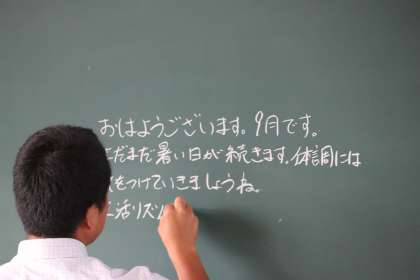 おはようございます。9月です。
まだまだ暑い日が続きます。体調には
をつけていきましょうね。
活リズ